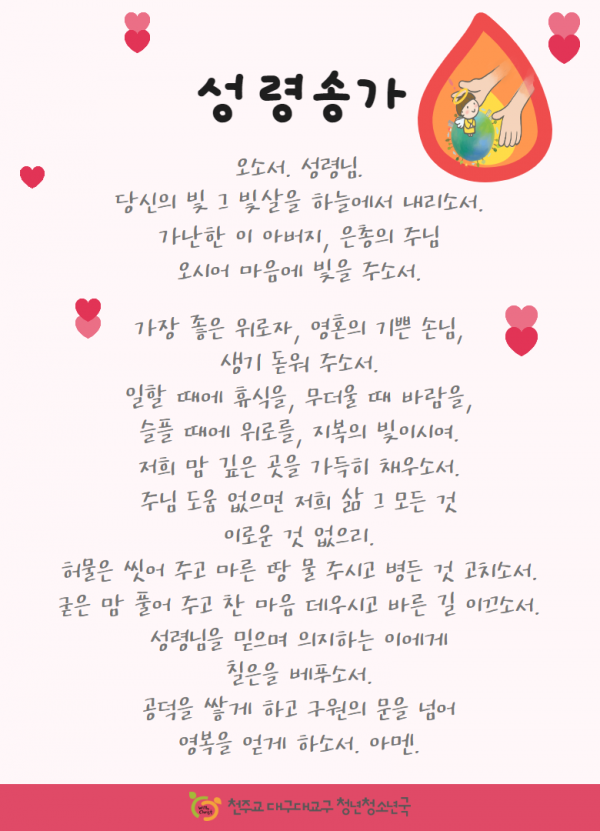 성령송가
오소서. 성령님.
당신의 빛 그 빛살을 하늘에서 내리소서.
가난한 이 아버지, 은총의 주님
오시어 마음에 빛을 주소서.
가장 좋은 위로자, 영혼의 기쁜 손님,
생기 돋워 주소서.
일할 때에 휴식을, 무더울 때 바람을,
슬플 때에 위로를, 지복의 빛이시여.
저희 맘 깊은 곳을 가득히 채우소서.
주님 도움 없으면 저희 삶 그 모든 것
이로운 것 없으리.
허물은 씻어 주고 마른 땅 물 주시고 병든 것 고치소서.
굳은 맘 풀어 주고 찬 마음 데우시고 바른 길 이끄소서.
성령님을 믿으며 의지하는 이에게
칠은을 베푸소서.
공덕을 쌓게 하고 구원의 문을 넘어
영복을 얻게 하소서. 아멘.
천주교 대구대교구 청년청소년국